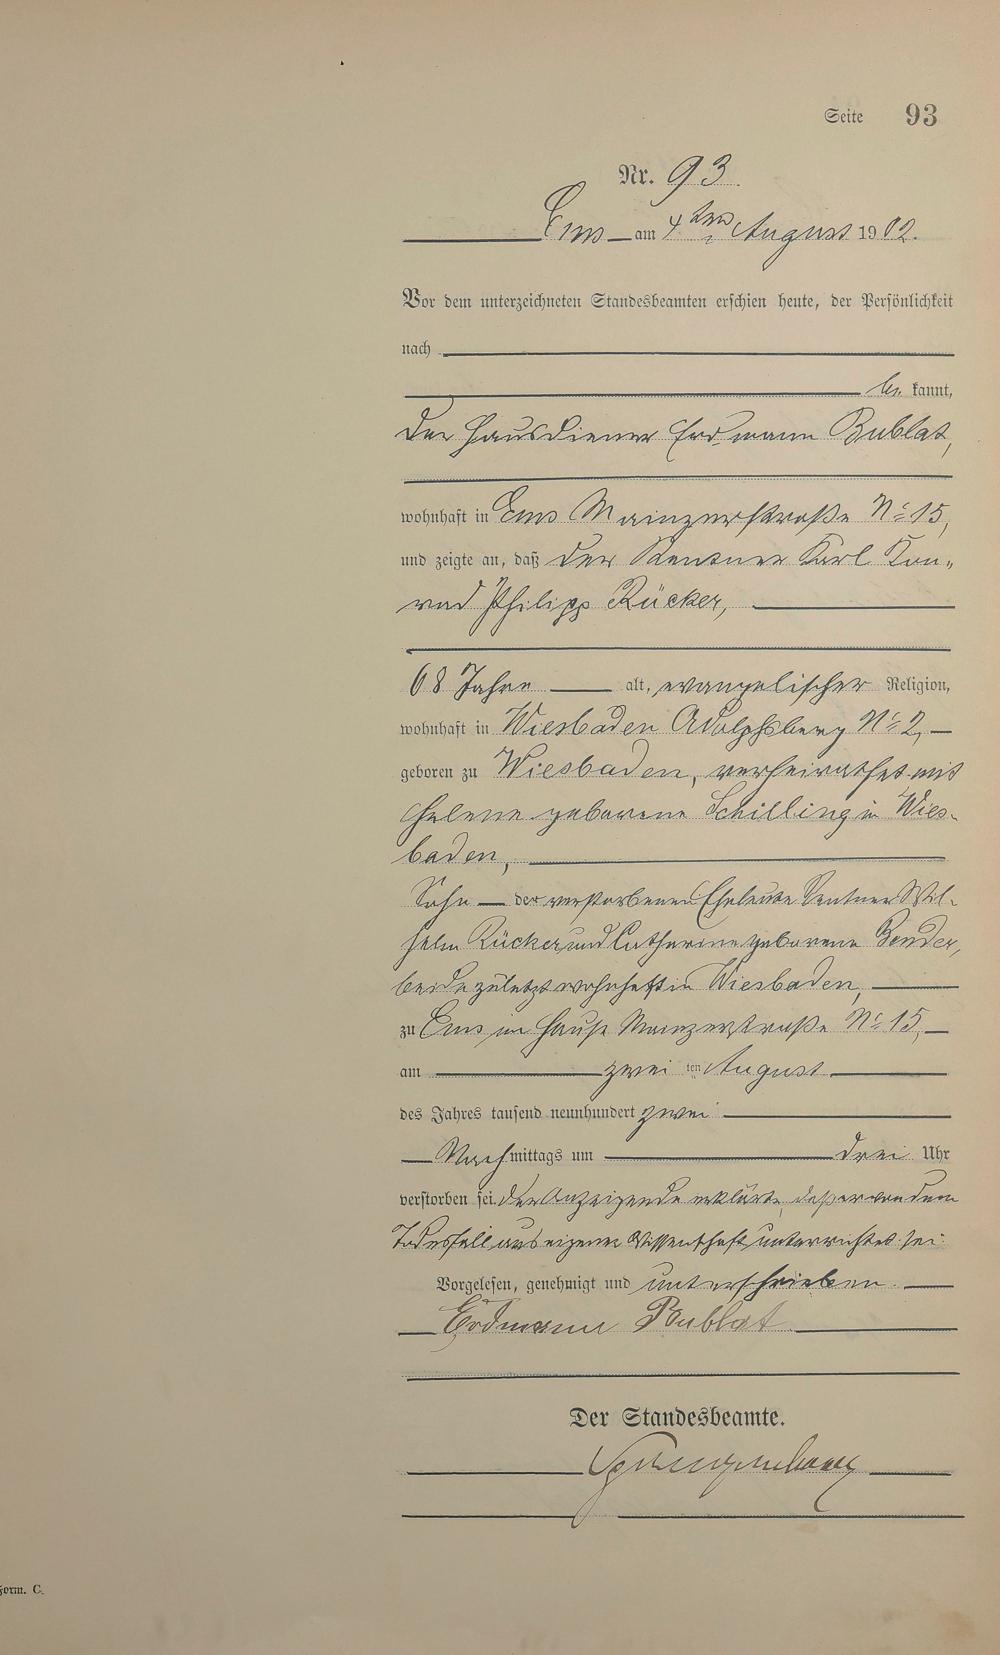 Seite 93
Nr. 93.
Ems am 4ten August 1902.
Vor dem unterzeichneten Standesbeamten erschien heute, der Persönlichkeit
nach
be kannt,
der Hausdiener Erdmann Bublat,
wohnhaft in Ems Mainzerstraße No 15,
und zeigte an, daß der Rentner Karl Kon-
rad Philipp Rücker,
68 Jahre alt, evangelischer Religion,
wohnhaft in Wiesbaden Adolphsberg No 2,
geboren zu Wiesbaden, verheirathet mit
Helene geborene Schilling in Wies-
baden,
Sohn der verstorbenen Eheleute Rentner Wil-
helm Rücker und Catharine geborene Bender,
beide zuletzt wohnhaft in Wiesbaden,
zu Ems im Hause Mainzerstraße No 15,
am zwei ten August
des Jahres tausend neunhundert zwei
Nach mittags um drei Uhr
verstorben sei. der Anzeigende erklärte, daß er von dem
Todesfall aus eigener Wissenschaft unterrichtet sei.
Vorgelesen, genehmigt und unterschrieben.
Erdmann Bublat
Der Standesbeamte.
Form. C.